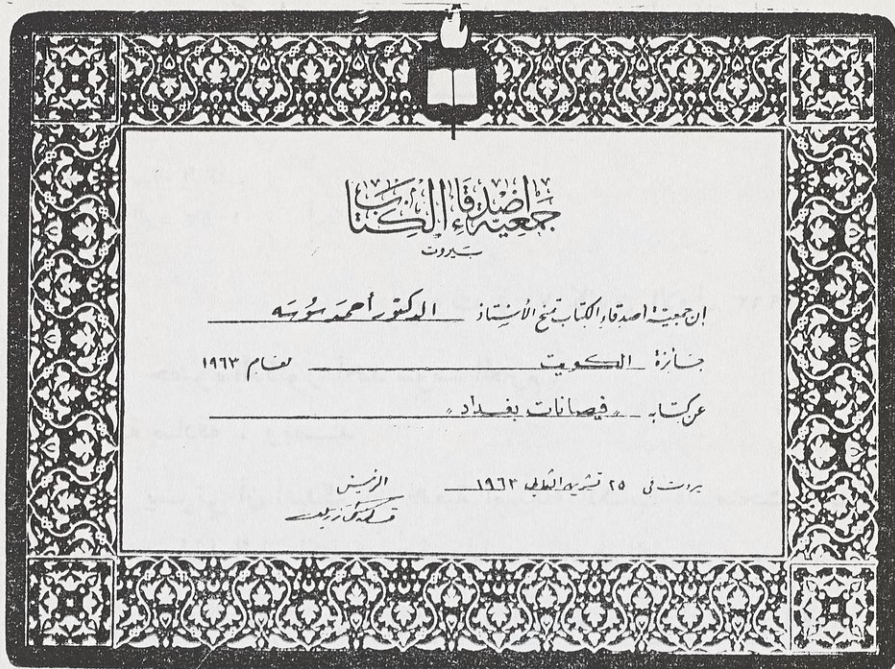 جمعية اصدقاء الكتاب
بيروت
ان جمعية اصدقاء الكتاب تمنح الأستاذ الدكتور أحمد سوسه
جائزة الكويت لعام ١٩٦٣
عن كتابه "فيضانات بغداد"
بيروت في ٢٥ تشرين الثاني ١٩٦٣
الرئيس